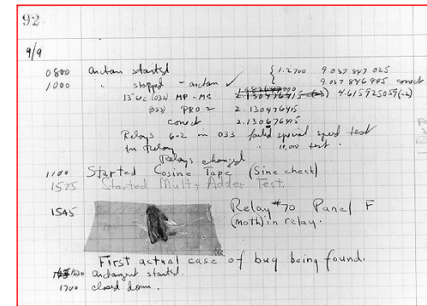 92
9/9
0800 antan started
1000 " stopped - antan ✓ { 1.2700 9.037 847 025
9.037 846 995 correct
13"uc (032) MP-MC 2.130476415 (-3) 4.615925059(-2)
(033) PRO 2 2.130476415
correct 2.130676415
Relays 6-2 in 033 failed special speed test
in Relay " 10.000 test.
Relays changed
1100 Started Cosine Tape (Sine check)
1525 Started Multi Adder Test.
1545 Relay #70 Panel F
(moth) in relay.
First actual case of bug being found.
1630 antangent started.
1700 closed down.